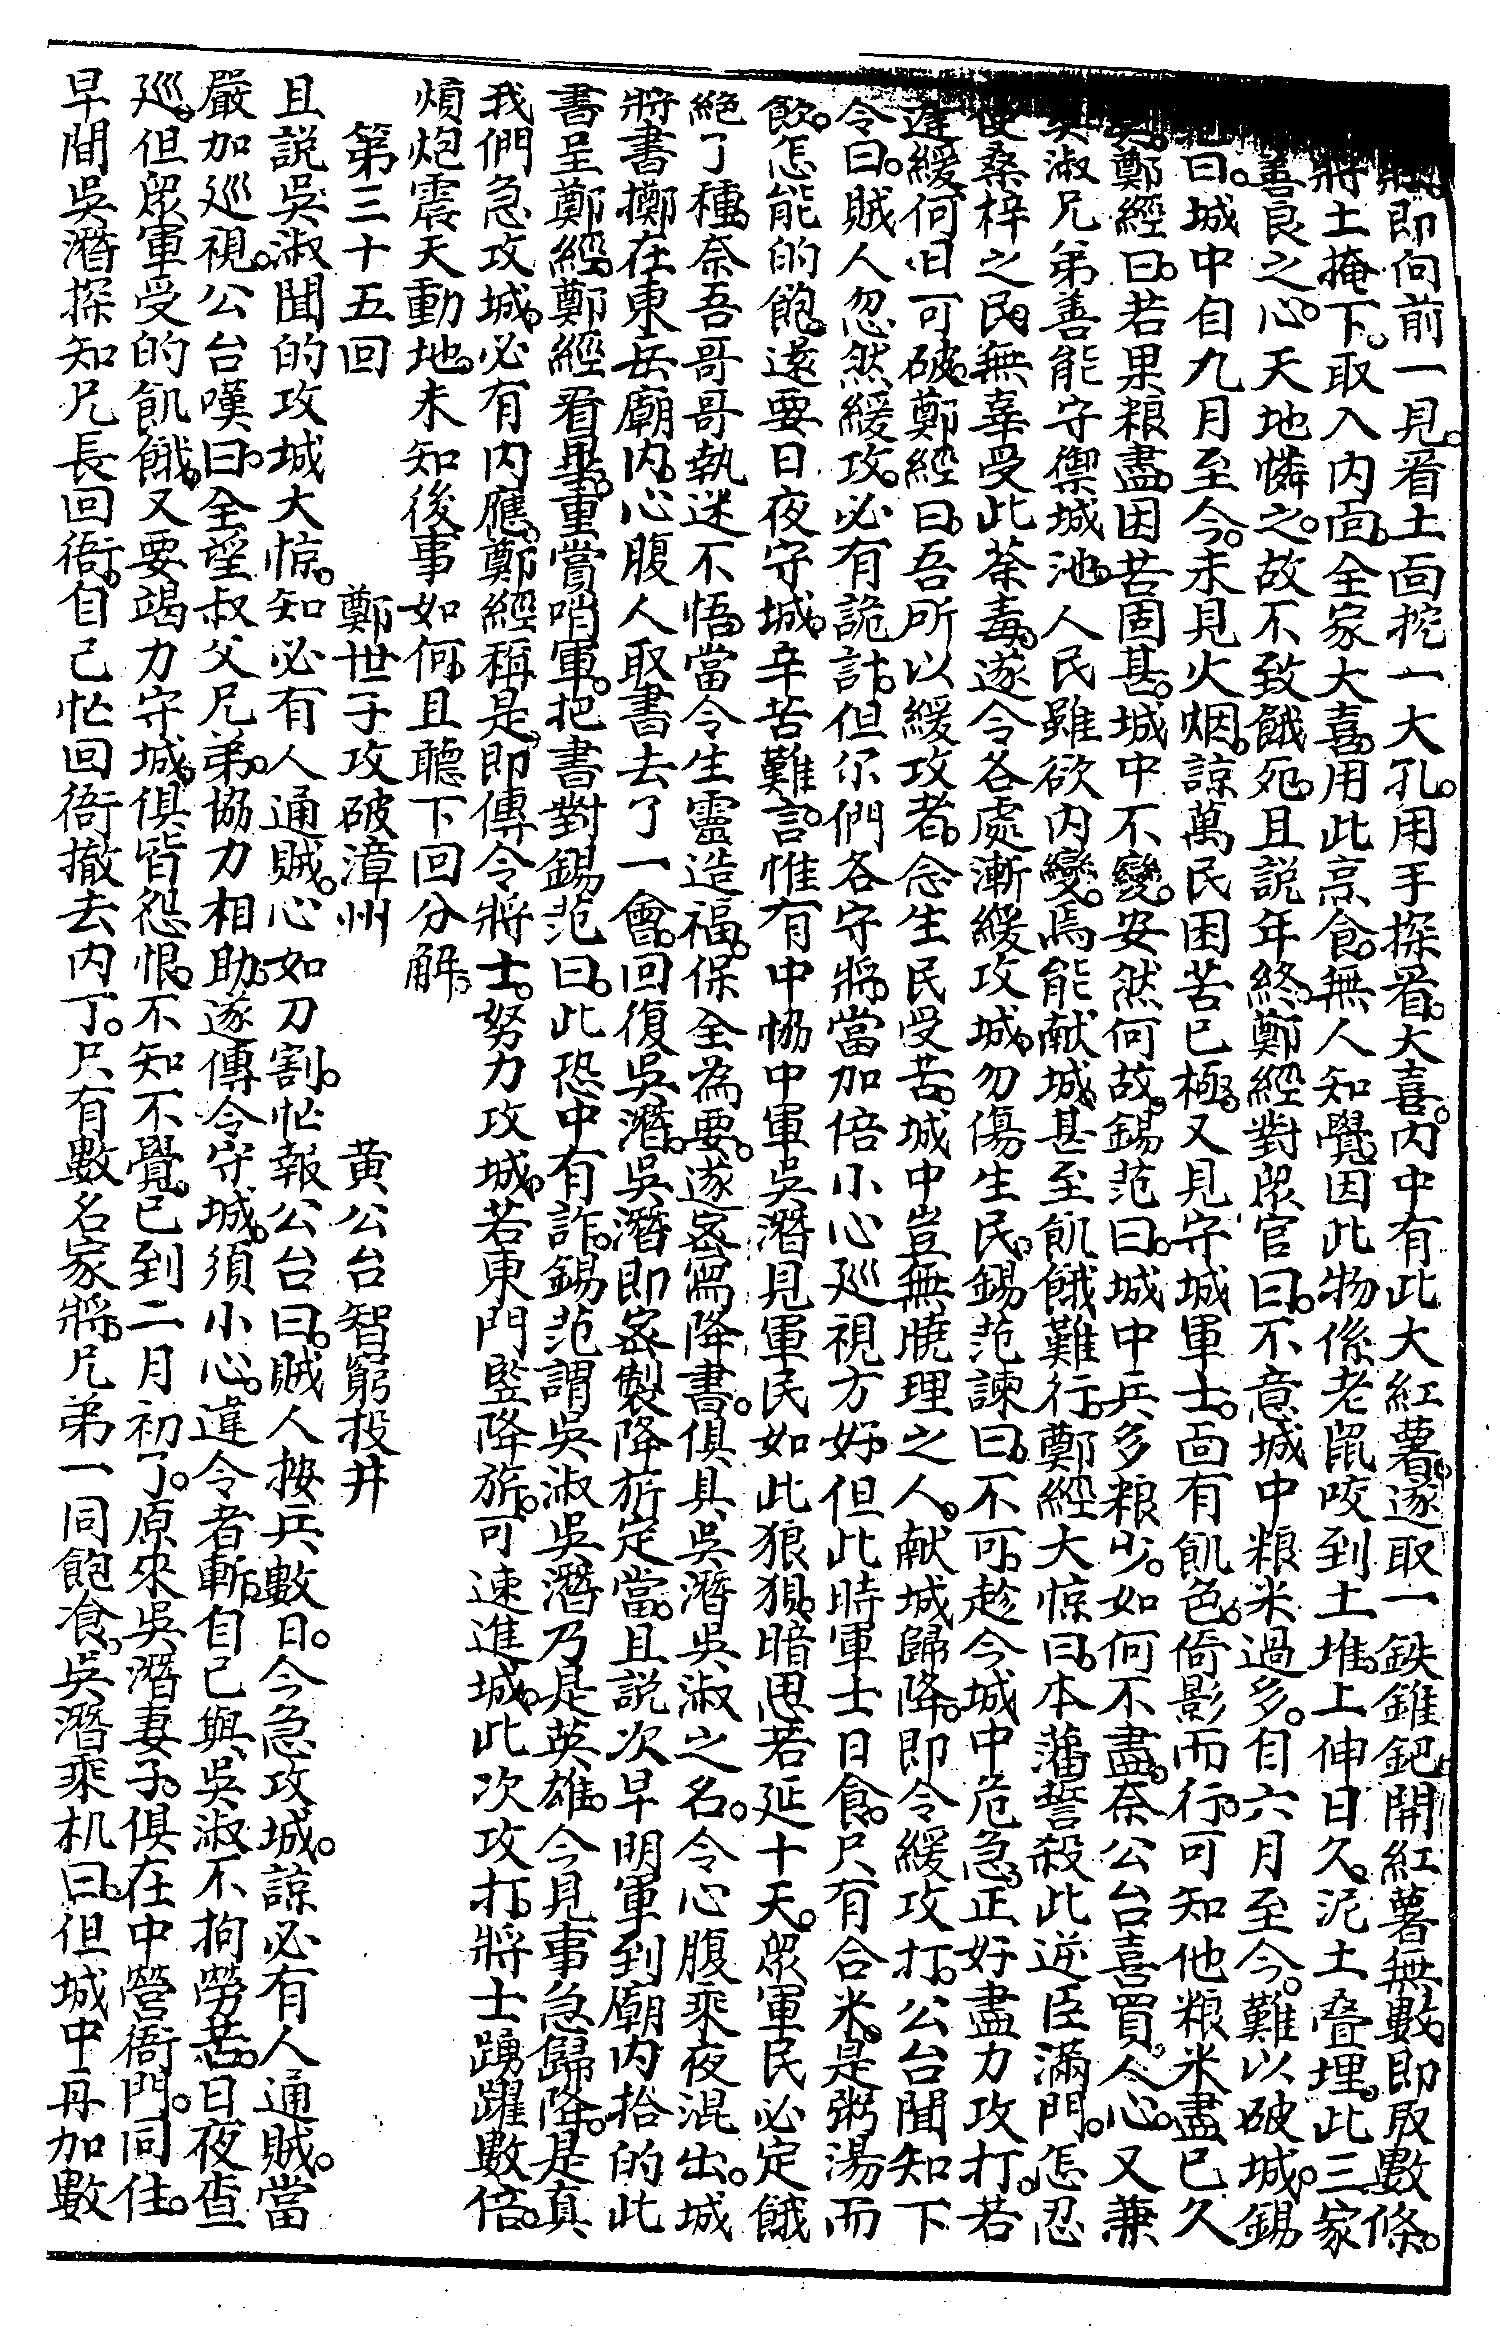 即向前一見。看土面挖一大孔。用手探看。大喜。內中有此大紅薯。遂取一鉄錐鈀開紅薯無數。即取數條。
將土掩下。取入內面。全家大喜。用此烹食。無人知覺。因此物係老鼠咬到土堆。上伸日久。泥土叠埋。此三家
善良之心。天地憐之。故不致餓死。且説年終。鄭經對眾官曰。不意城中粮米過多。自六月至今。難以破城。錫
曰。城中自九月至今。未見火烟。諒萬民困苦已極。又見守城軍士。面有飢色。倚影而行。可知他粮米盡已久
鄭經曰。若果粮盡。困苦固甚。城中不變。安然何故。錫范曰。城中兵多粮少。如何不盡。奈公台喜買人心。又兼
吳淑兄弟善能守禦城池。人民雖欲內變。焉能献城。甚至飢餓難行。鄭經大惊曰。本藩誓殺此逆臣滿門。怎忍
使桑梓之民。無辜受此荼毒。遂令各處漸緩攻城。勿傷生民。錫范諫曰。不可。趁今城中危急。正好盡力攻打。若
逢緩。何日可破。鄭經曰。吾所以緩攻者。念生民受苦。城中豈無曉理之人。献城歸降。即令緩攻打。公台聞知下
令曰。賊人忽然緩攻。必有詭計。但尔們各守將。當加倍小心廵視方好。但此時軍士日食。尺有合米。是粥湯而
飲。怎能的飽。遂要日夜守城。辛苦難言。惟有中協中軍吳潛見軍民如此狼狽。暗思若延十天。眾軍民必定餓
絕了種。奈吾哥哥執迷不悟。當令生靈造福。保全為要。遂密寫降書。俱具吳潛吳淑之名。令心腹乘夜混出。城
將書擲在東岳廟內。心腹人取書去了一會。回復吳潛。吳潛即密製降旂定當。且説次早明軍到廟內拾的此
書呈鄭經。鄭經看畢。重賞哨軍。把書對錫范曰。此恐中有詐。錫范謂吳淑吳潛乃是英雄。今見事急歸降。是真
我們急攻城。必有內應。鄭經稱是。即傳令將士。努力攻城。若東門竪降旂。可速進城。此次攻打。將士踴躍數倍。
煩炮震天動地。未知後事如何。且聽下回分解。
第三十五回　鄭世子攻破漳州　黄公台智窮投井
且説吳淑聞的攻城大惊。知必有人通賊。心如刀割。忙報公台曰。賊人按兵數日。今急攻城。諒必有人通賊。當
嚴加廵視。公台嘆曰。全望叔父兄弟。協力相助。遂傳令守城。須小心。違令者斬。自己與吳淑不拘勞苦。日夜查
廵。但眾軍受的飢餓。又要竭力守城。俱皆怨恨。不知不覺。已到二月初了。原來吳潛妻子。俱在中營衙門。同住。
早間吳潛探知兄長回衙。自己忙回衙撤去內丁。尺有數名家將。兄弟一同飽食。吳潛乘机曰。但城中再加數